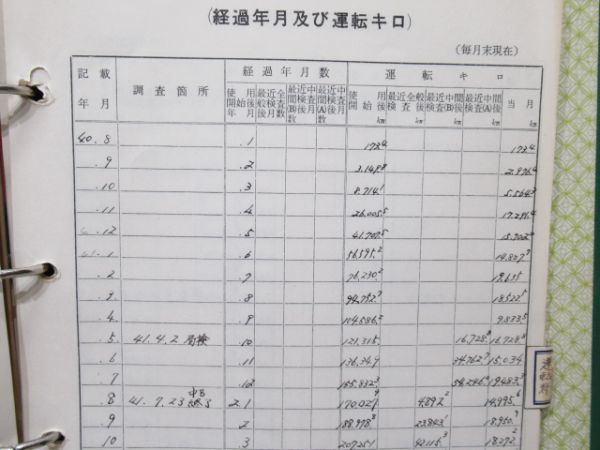 (経過年月及び運転キロ)
(毎月末現在)
記載年月 調査箇所 経過年月数 運転キロ
使用開始後年月 最近全般検後月数 最近中間検査(B)後月数 最近中間検査(A)後月数 使用開始後km 最近全般検査後km 最近中間検査(B)後km 最近中間検査(A)後km 当月km
40.8 .1 173.4 173.4
.9 .2 3.149.8 2.976.4
.10 .3 8.714.1 5.564.3
.11 .4 26.005.5 17.291.4
.12 .5 41.707.5 15.702.4
.1 .6 56.595.2 14.887.7
.2 .7 76.230.2 19.635
.3 .8 94.752.7 18522.5
.4 .9 104.586.2 9.833.5
.5 41.4.2 局検 10 121.315 16.728.8 16.728.8
.6 11 136.349 15.034
.7 12 155.832.3 19483.3
.8 41.7.23 2.1 170.021 4.892.2 14.995.6
.9 2 188.978.8 23843.1 18.950.9
10 3 207251 42115.3 18.272.2
運転